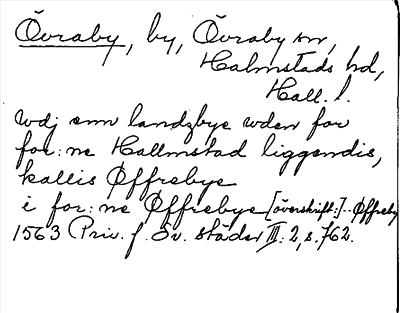 Övraby, by, Övraby sn,
Halmstads hd,
Hall. l.
wdj enn landzbye wden for
for:ne Hallmstad liggendis,
kallis Øffrebye
i for:ne Øffrebye [överskrift:].. Øffreby
1563 Priv. f. Sv. städer III: 2, s. 762.